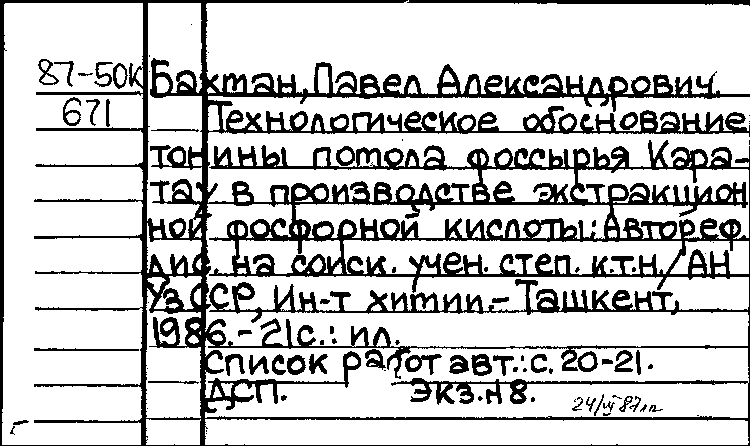 87-50К Бахтан, Павел Александрович.
671 Технологическое обоснование
тонины потола фоссырья Кара-
тау в производстве экстракцион
ной фосфорной кислоты: Автореф.
дис. на соиск. учен. степ. к.т.н./АН
УзССР, Ин-т химии.- Ташкент,
1986.- 21с.: ил.
Список работ авт.: с. 20-21.
ДСП. Экз.н 8.
24/VI 87